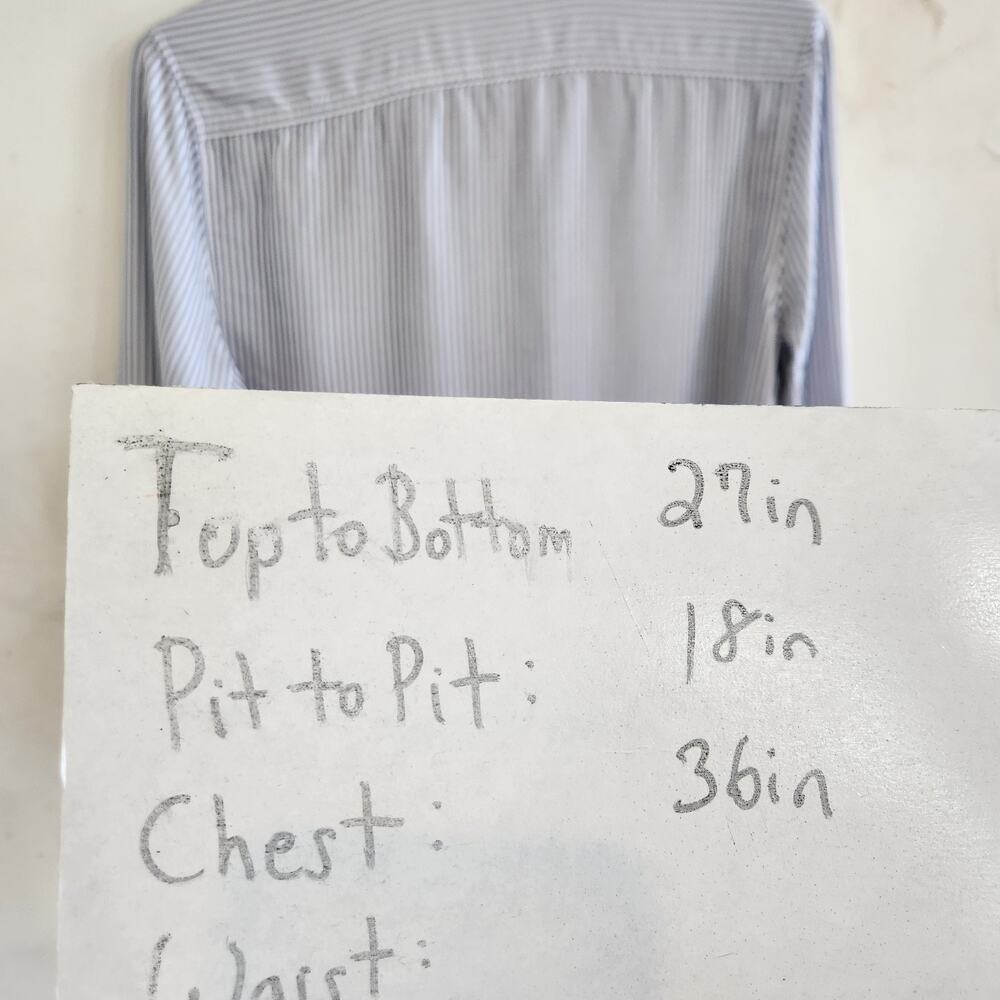 Top to Bottom 27in
Pit to Pit: 18in
Chest: 36in
Waist: